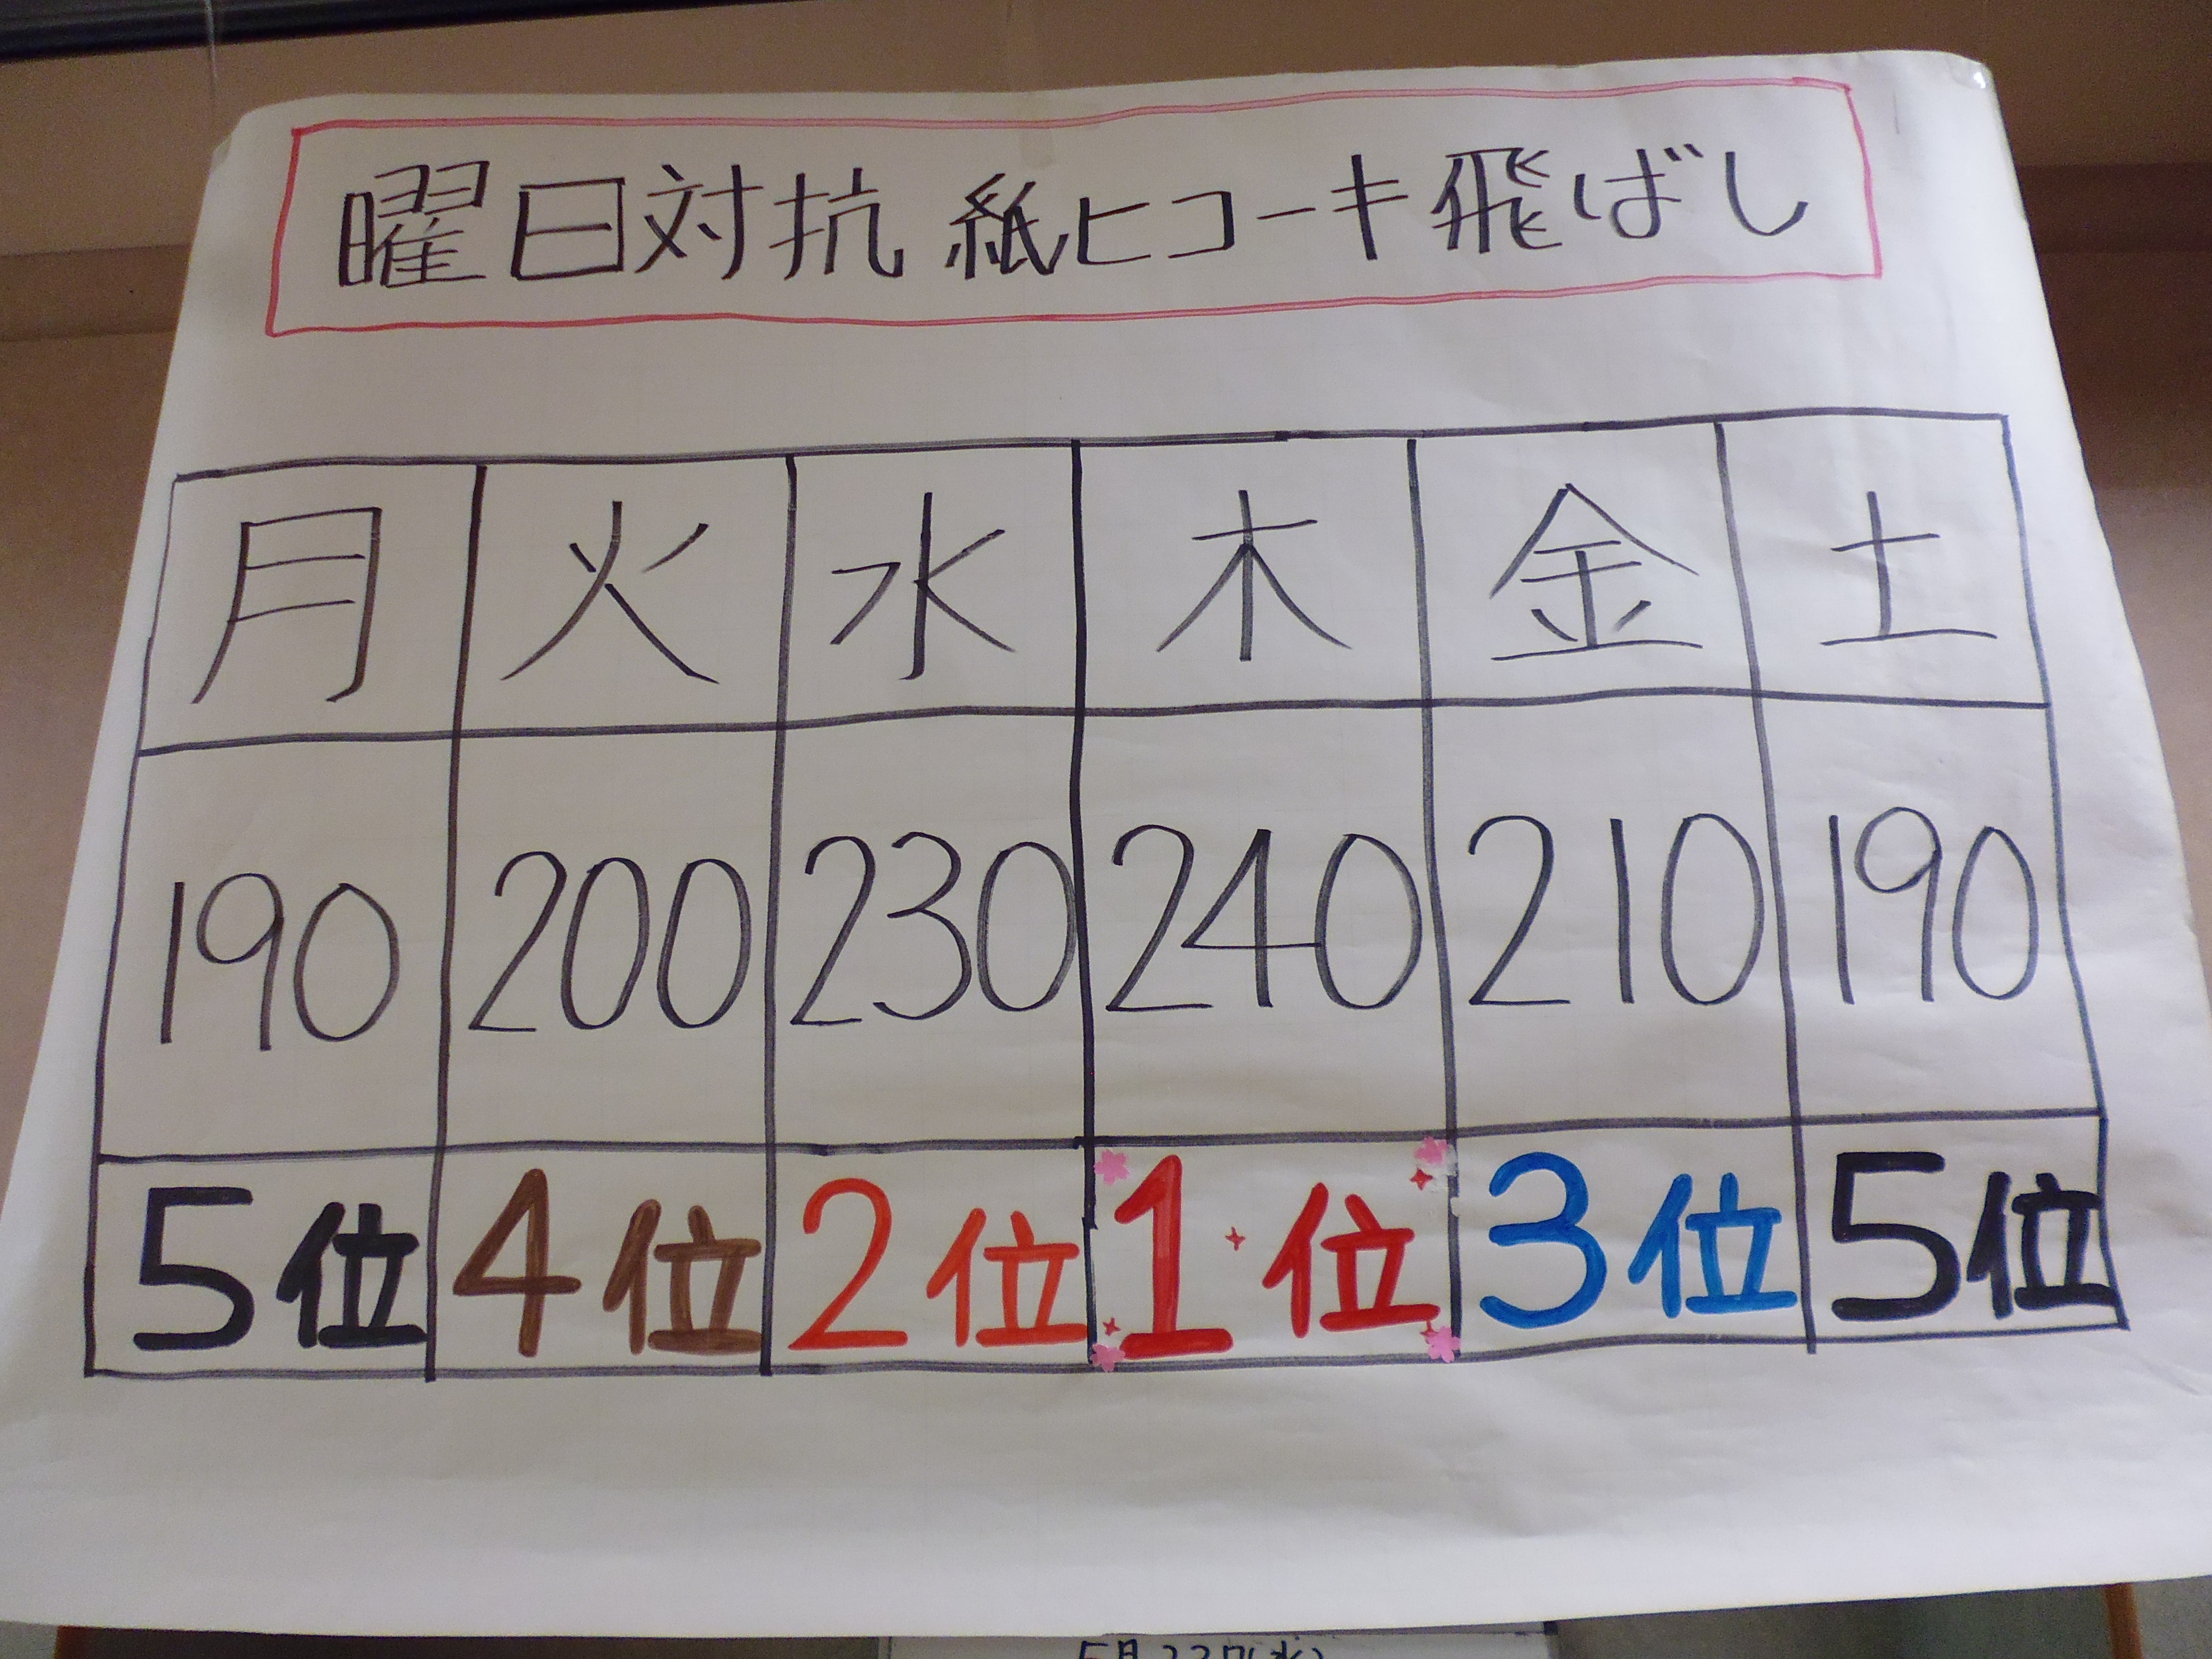 曜日対抗 紙ヒコーキ飛ばし
月 火 水 木 金 土
190 200 230 240 210 190
5位 4位 2位 1位 3位 5位